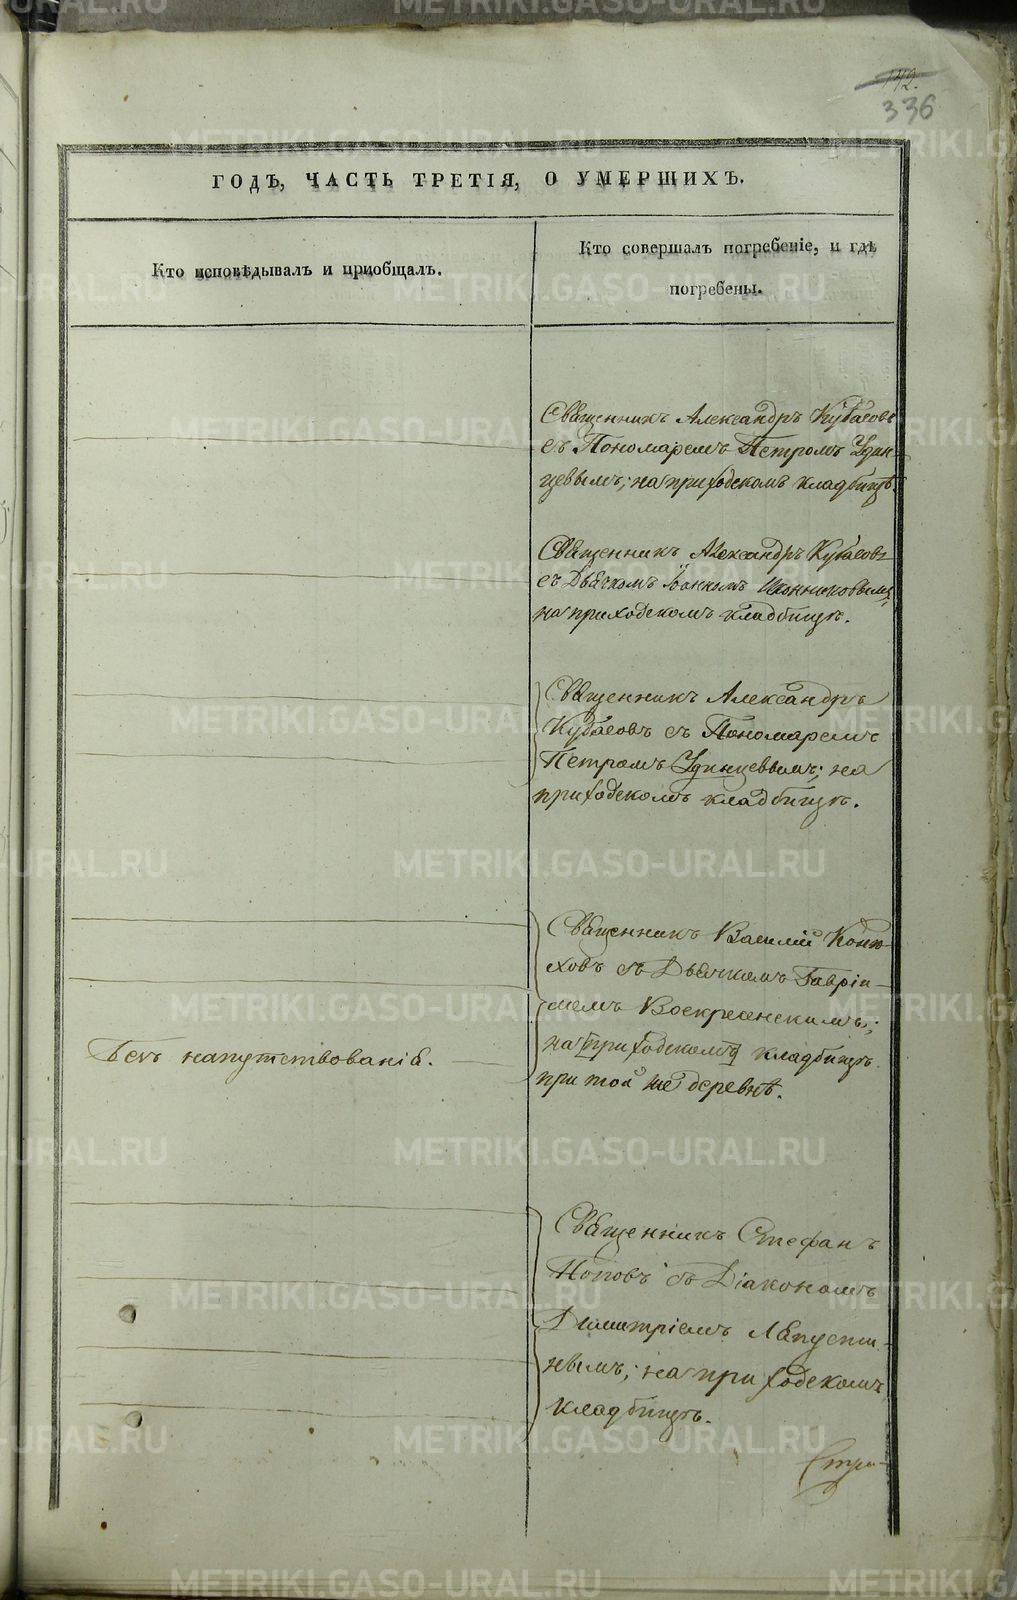 142.
336
ГОДЪ, ЧАСТЬ ТРЕТІЯ, О УМЕРШИХЪ.
Кто исповѣдывалъ и приобщалъ.
Кто совершалъ погребеніе, и гдѣ
погребены.
Священникъ Александръ Кубасовъ
съ Пономаремъ Петромъ Удин-
цевымъ; на приходскомъ кладбищѣ.
Священникъ Александръ Кубасовъ
съ Дьячкомъ Иконниковымъ;
на приходскомъ кладбищѣ.
Священникъ Александръ
Кубасовъ съ Пономаремъ
Петромъ Удинцевымъ; на
приходскомъ кладбищѣ.
Священникъ Василій Коню-
ховъ съ Дьячкомъ Гавріи-
ломъ Воскресенскимъ;
на [приходскомъ] кладбищѣ
при той же деревнѣ.
Безъ напутствованія.
Священникъ Стефанъ
Поповъ съ Діакономъ
Димитріемъ Лапусти-
нымъ; на приходскомъ
кладбищѣ.
METRIKI.GASO-URAL.RU